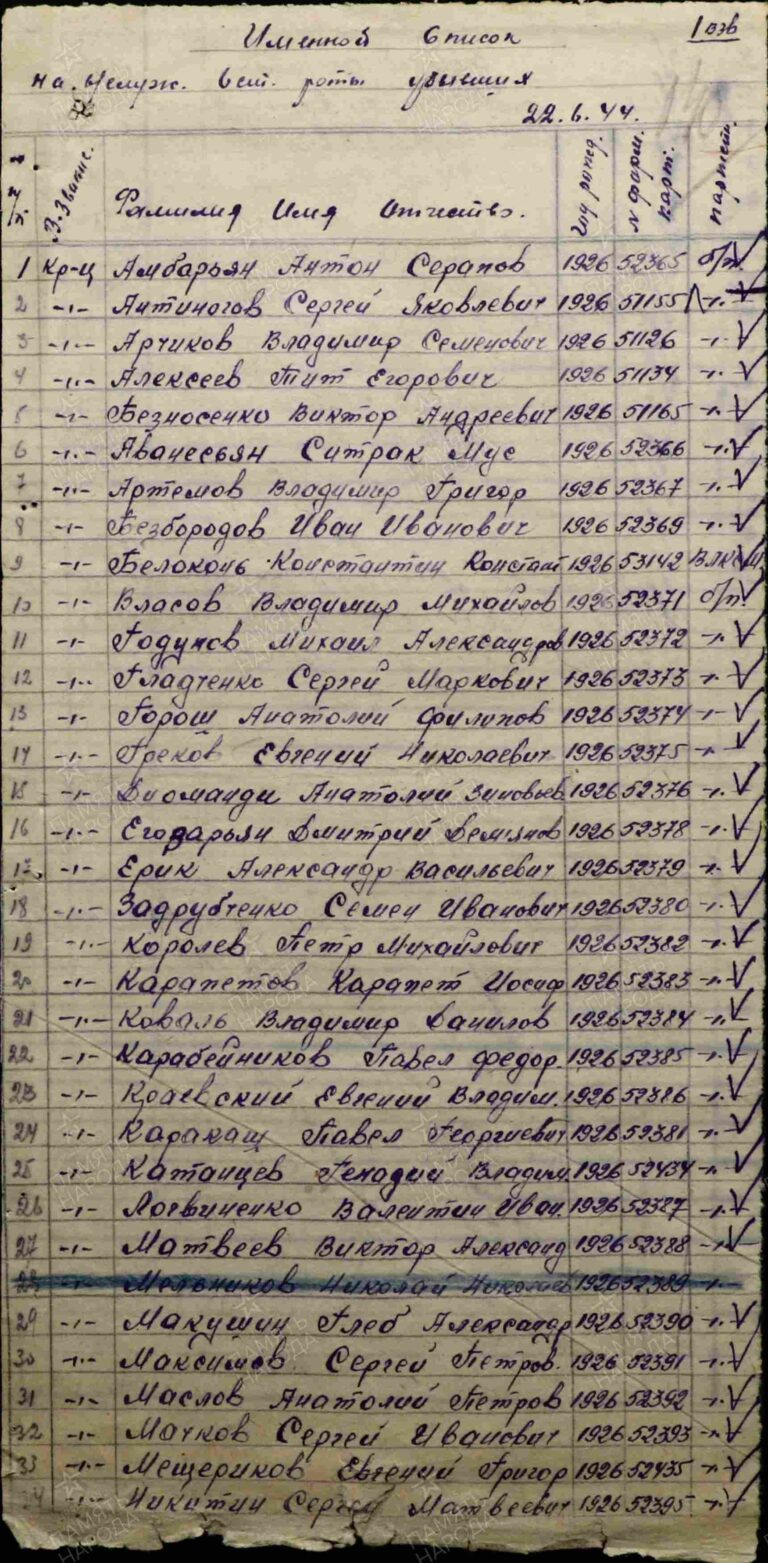 1 взв
Именной Список
на. служ. вст. роты убывших
22.6.44.
№ п/п В.Звание. Фамилия Имя Отчество. Год рожд. № форм. карт. партст.
1 Кр-ц Амбарьян Антон Серапов 1926 52365 б/п.
2 -"- Антиногов Сергей Яковлевич 1926 51155 -"-
3 -"- Арчиков Владимир Семенович 1926 51126 -"-
4 -"- Алексеев Тит Егорович 1926 51134 -"-
5 -"- Безносенко Виктор Андреевич 1926 51165 -"-
6 -"- Аванесьян Ситрак Мус 1926 52366 -"-
7 -"- Артемов Владимир Григор 1926 52367 -"-
8 -"- Безбородов Иван Иванович 1926 52369 -"-
9 -"- Белоконь Константин Констант 1926 53142 ВЛКСМ
10 -"- Власов Владимир Михайлов 1926 52371 б/п.
11 -"- Годунов Михаил Александров 1926 52372 -"-
12 -"- Гладченко Сергей Маркович 1926 52373 -"-
13 -"- Горош Анатолий Филипов 1926 52374 -"-
14 -"- Греков Евгений Николаевич 1926 52375 -"-
15 -"- Диоманди Анатолий Зиновьев 1926 52376 -"-
16 -"- Егодарьян Дмитрий Демьянов 1926 52378 -"-
17. -"- Ерик Александр Васильевич 1926 52379 -"-
18 -"- Задрубченко Семен Иванович 1926 52380 -"-
19 -"- Королев Петр Михайлович 1926 52382 -"-
20 -"- Карапетов Карапет Иосиф 1926 52383 -"-
21 -"- Коваль Владимир Данилов 1926 52384 -"-
22 -"- Карабейников Павел Федор. 1926 52385 -"-
23 -"- Краевский Евгений Владим. 1926 52386 -"-
24 -"- Каракаш Павел Георгиевич 1926 52381 -"-
25 -"- Катанцев Генадий Владим. 1926 52434 -"-
26 -"- Логвиненко Валентин Иван. 1926 52387 -"-
27 -"- Матвеев Виктор Александ 1926 52388 -"-
28 -"- Мельников Николай Николаев 1926 52389 -"-
29 -"- Макушин Глеб Александр 1926 52390 -"-
30 -"- Максимов Сергей Петров. 1926 52391 -"-
31 -"- Маслов Анатолий Петров 1926 52392 -"-
32 -"- Мачков Сергей Иванович 1926 52393 -"-
33 -"- Мещериков Евгений Григор 1926 52435 -"-
34 -"- Никитин Сергей Матвеевич 1926 52395 -"-